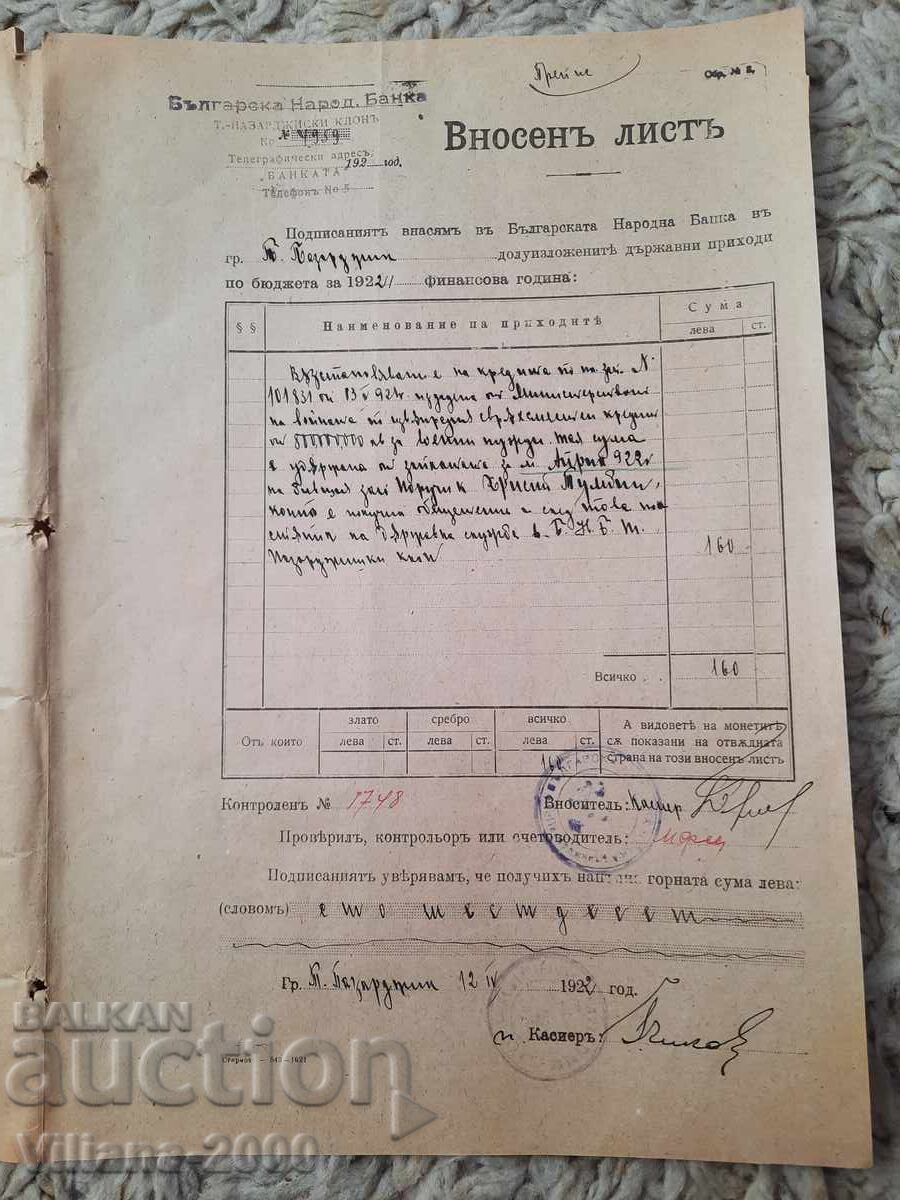 Препис
Обр. № 2.
Българска Народ. Банка
Т.-ПАЗАРДЖИСКИ КЛОНЪ
No 4959
Телеграфически адресъ,
192 год.
„БАНКАТА“
Телефонъ No 5
Вносенъ листъ
Подписаниятъ внасямъ въ Българската Народна Банка въ
гр. Т. Пазарджик долуизложенитѣ държавни приходи
по бюджета за 1922/ финансова година:
§ § Наименование на приходитѣ Сума
лева ст.
Възстановяване на кредита по №
101831 от 13 921 от Министерството
на войната по свръхсметен кредит
от 500000000 лв за военни нужди. Тая сума
е удържана от за м. Април 922 г
на бившия зап. Поручик Христо
който е и след това
на държавна служба в Б. Н. Б. Т.
Пазарджишки клон 160
Всичко . . 160
Отъ които злато сребро всичко
лева ст. лева ст. лева ст.
160
А видоветѣ на монетитѣ
сѫ показани на отвѫдната
страна на този вносенъ листъ
Контроленъ № 1748 Вноситель: Касиер
Провѣрилъ, контрольоръ или счетоводитель:
Подписаниятъ увѣрявамъ, че получихъ напълно горната сума лева:
(словомъ) сто шестдесет
Гр. Т. Пазарджик 12 IV 1922 год.
п Касиеръ:
843—1921
BALKAN
auction
Viliana-2000